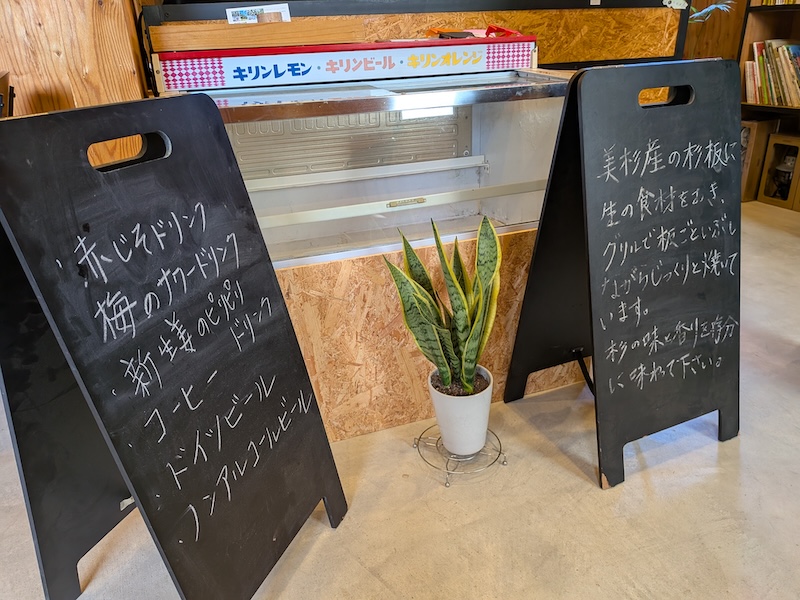 キリンレモン・キリンビール・キリンオレンジ
・赤じそドリンク
・梅のサワードリンク
・新生姜のピリピリ
ドリンク
・コーヒー
・ドイツビール
・ノンアルコールビール
美杉産の杉板に
生の食材をおき、
グリルで板ごといぶし
ながらじっくりと焼いて
います。
杉の味と香りを存分
に味わって下さい。